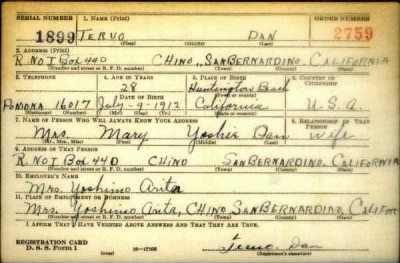 SERIAL NUMBER 1. NAME (Print) ORDER NUMBER
1899 TERUO DAN 2759
(First) (Middle) (Last)
2. ADDRESS (Print)
R. NO 1 Box 44D CHINO, SAN BERNARDINO, CALIFORNIA
(Number and street or R. F. D. number) (Town) (County) (State)
3. TELEPHONE 4. AGE IN YEARS 5. PLACE OF BIRTH 6. COUNTRY OF CITIZENSHIP
28 Huntington Beach
POMONA 16017 DATE OF BIRTH July-9-1912 California U.S.A.
(Exchange) (Number) (Mo.) (Day) (Yr.) (State or country)
7. NAME OF PERSON WHO WILL ALWAYS KNOW YOUR ADDRESS 8. RELATIONSHIP OF THAT PERSON
Mrs. Mary Yoshie Dan wife
(Mr., Mrs., Miss) (First) (Middle) (Last)
9. ADDRESS OF THAT PERSON
R. NO 1 Box 44D CHINO SAN BERNARDINO, CALIFORNIA
(Number and street or R. F. D. number) (Town) (County) (State)
10. EMPLOYER'S NAME
Mrs. Yoshino Arita
11. PLACE OF EMPLOYMENT OR BUSINESS
Mrs. Yoshino Arita, CHINO SAN BERNARDINO, CALIF
(Number and street or R. F. D. number) (Town) (County) (State)
I AFFIRM THAT I HAVE VERIFIED ABOVE ANSWERS AND THAT THEY ARE TRUE.
REGISTRATION CARD
D. S. S. Form 1 16-17105 Dan
(Registrant's signature)